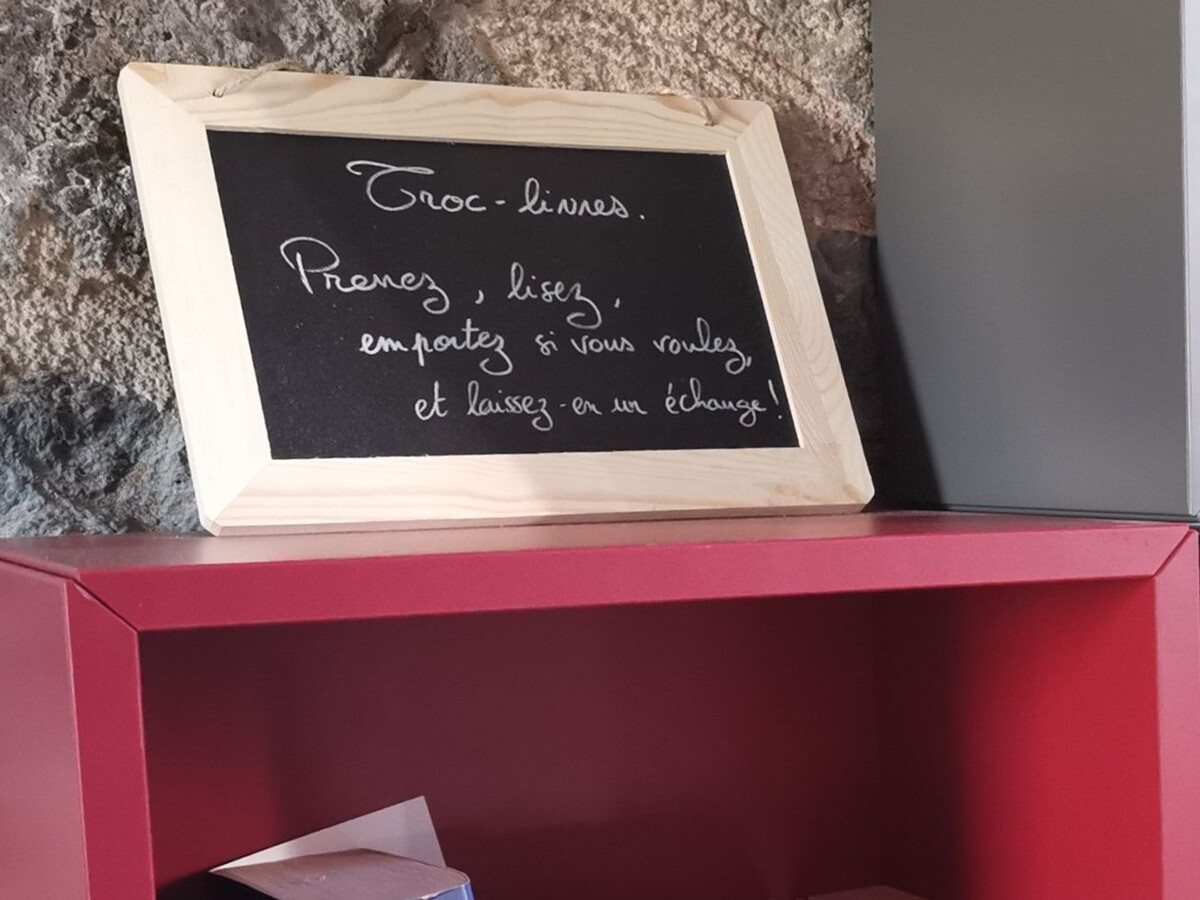 Troc-livres.
Prenez, lisez,
emportez si vous voulez,
et laissez-en un échange!